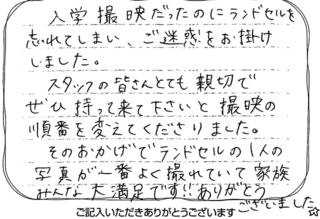 入学撮映だったのにランドセルを
忘れてしまい、ご迷惑をお掛け
しました。
スタッフの皆さんとても親切で
ぜひ持って来て下さいと撮映の
順番を変えてくださりました。
そのおかげでランドセルの1人の
写真が一番よく撮れていて家族
みんな大満足です!!ありがとう
ございました。
ご記入いただきありがとうございます